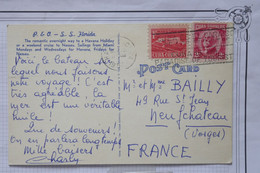 P & O - S. S. Florida
The romantic overnight way to a Havana Holiday
or a weekend cruise to Nassau. Sailings from Miami
Mondays and Wednesdays for Havana; Fridays for
Nassau.
Voici le bateau sur
lequel nous faisons
notre voyage! C'est
très agréable la
mer est une véritable
huile!
Que de souvenirs!
on en parlera longtemps
Mille baisers
Charly
POST CARD
Mr et Mme BAILLY
49 Rue St Jean
Neufchateau
(Vosges)
FRANCE